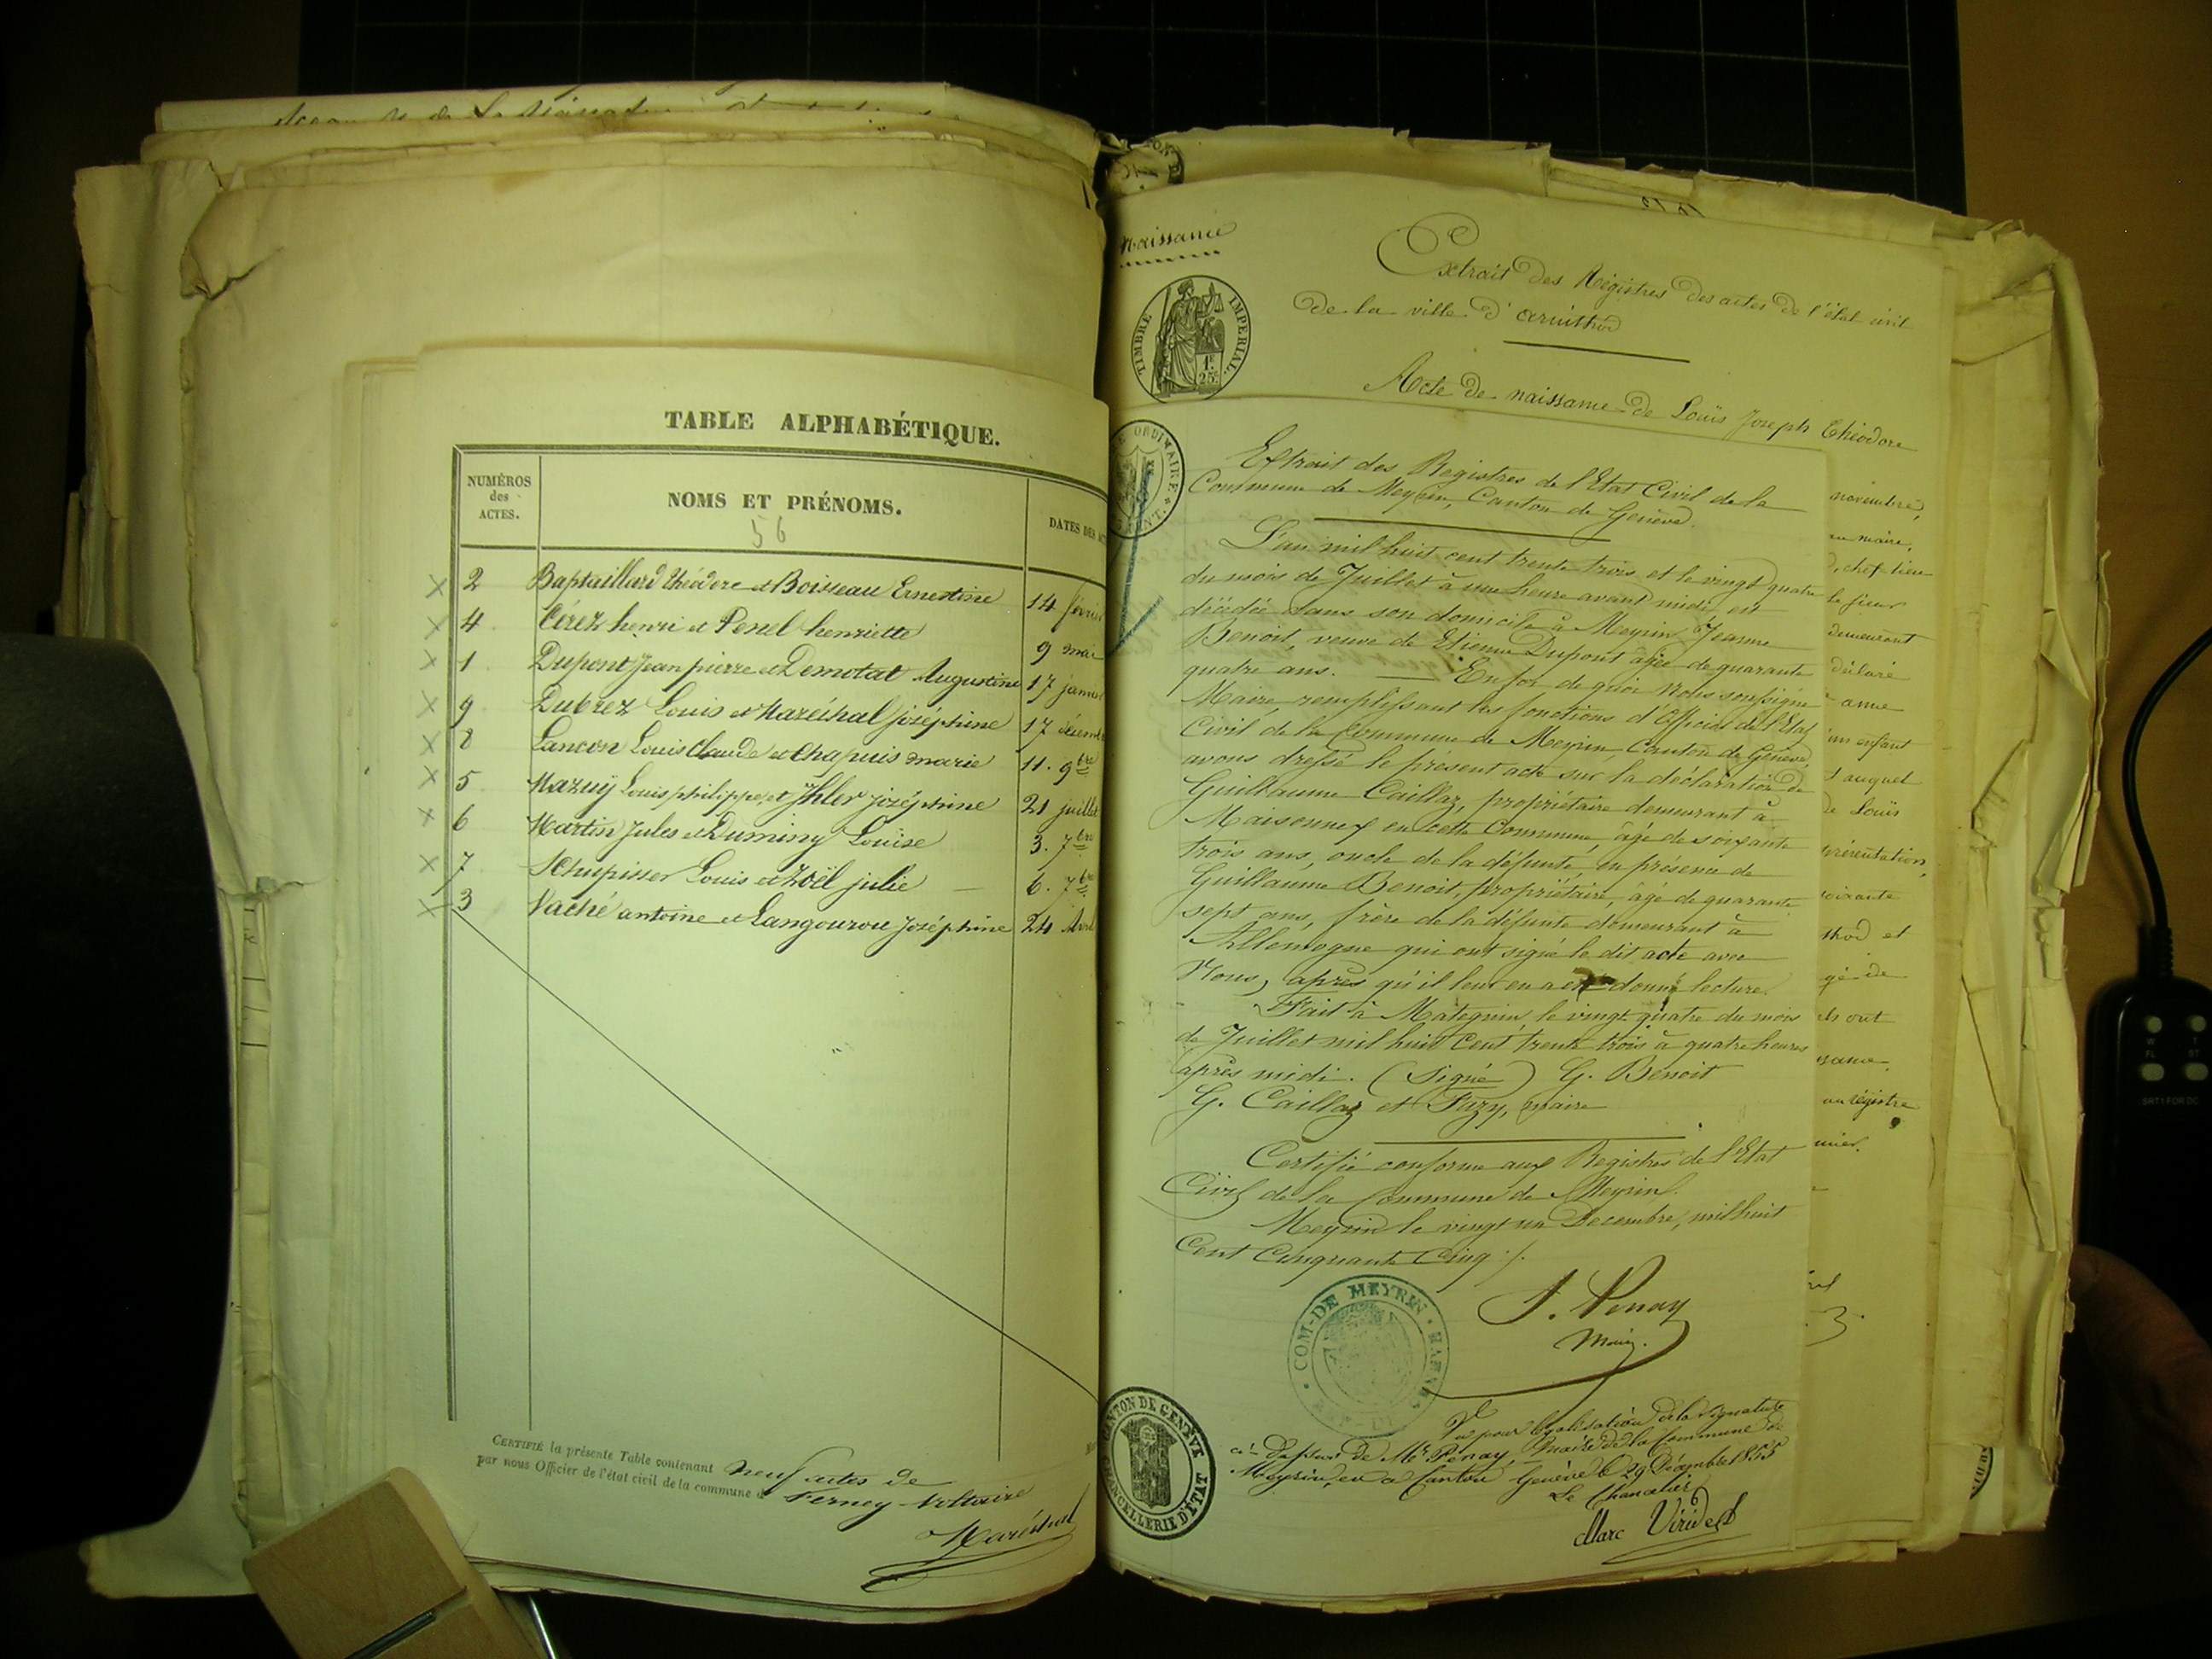 TABLE ALPHABÉTIQUE.
NUMÉROS
des
ACTES.
NOMS ET PRÉNOMS.
DATES DES
56
2 Baptaillard théodore et Boisseau Ernestine 14 février
4 Cérez henri et Penel henriette 9 mai
1 Dupont Jean pierre et Demotat Augustine 17 janvier
9 Dubrez Louis et Maréchal joséphine 17
8 Lancon Louis Claude et Chapuis marie 11. 9bre
5 Mazuÿ Louis philippe et Ihler joséphine 21 juillet
6 Martin Jules et Duminy Louise 3. 7bre
7 Schupisser Louis et Noël julie 6. 7bre
3 Vaché antoine et Langourou Joséphine 24 Avril
CERTIFIÉ la présente Table contenant neuf actes de
par nous Officier de l'état civil de la commune de Ferney-Voltaire
Maréchal
Naissance
TIMBRE IMPERIAL
1F
25c
Extrait des Régistres des actes de l'état civil
de la ville d'arinthod
Acte de naissance de Louis Joseph Théodore
ORDINAIRE
Extrait des Registres de l'Etat Civil de la
Commune de Meyrin, Canton de Genève.
L'an mil huit cent trente trois et le vingt quatre
du mois de Juillet à une heure avant midi est
décédée dans son domicile à Meyrin Jeanne
Benoit, veuve de Etienne Dupont âgée de quarante
quatre ans. — En foi de quoi Nous soussigné
Maire remplissant les fonctions d'Officier de l'Etat
Civil de la Commune de Meyrin, Canton de Genève,
avons dressé le présent acte sur la déclaration de
Guillaume Caillaz, propriétaire demeurant à
Maisonnex en cette Commune, âgé de soixante
trois ans, oncle de la défunte, en présence de
Guillaume Benoit, propriétaire, âgé de quarante
sept ans, frère de la défunte demeurant à
Allemogne qui ont signé le dit acte avec
Nous, après qu'il leur en a été donné lecture.
Fait à Mategnin le vingt quatre du mois
de Juillet mil huit Cent trente trois à quatre heures
après midi. (Signé) G. Benoit
G. Caillaz et Fazy, maire
Certifié conforme aux Registres de l'Etat
Civil de la Commune de Meyrin.
Meyrin le vingt un Decembre, mil huit
Cent Cinquante Cinq
J. Penay
Maire.
COM. DE MEYRIN
Vu pour légalisation de la signature
ci-dessus de Mr Penay, Maire de la Commune de
Meyrin, en ce Canton Genève le 29 Décembre 1855
Le Chancelier
Marc Viridet
CANTON DE GENÈVE
CHANCELLERIE D'ÉTAT
novembre,
maire,
chef lieu
le sieur
demeurant
déclaré
anne
un enfant
auquel
de Louis
présentation,
soixante
thod et
gé de
ils ont
ssance.
au régistre